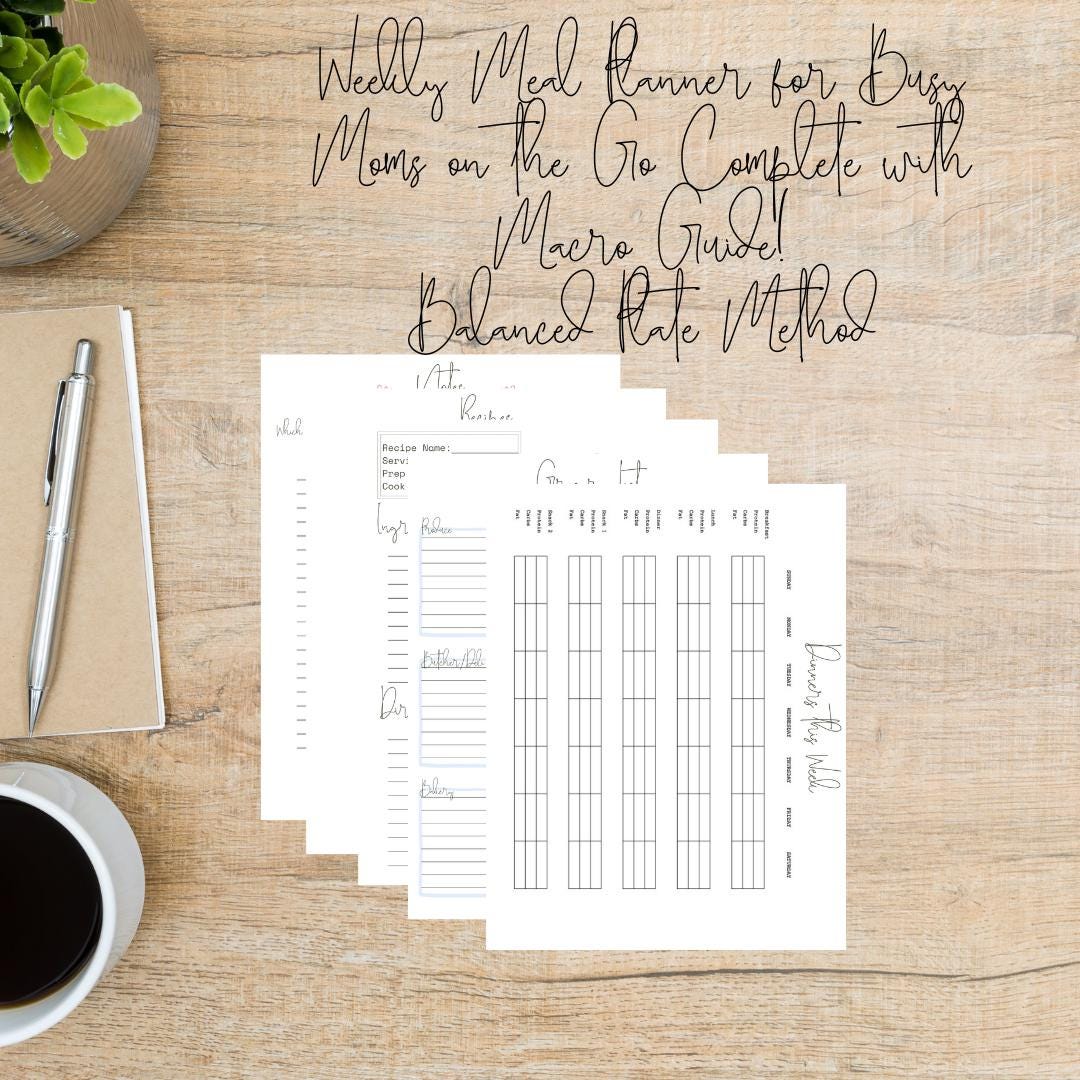 Weekly Meal Planner for Busy
Moms on the Go Complete with
Macro Guide!
Balanced Plate Method
Notes
Which
Recipes
Recipe Name:
Servi
Prep
Cook
Ingr
Dir
Grocery List
Produce
Butcher/Deli
Bakery
Dinners This Week
SUNDAY
MONDAY
TUESDAY
WEDNESDAY
THURSDAY
FRIDAY
SATURDAY
Breakfast
Protein
Carbs
Fat
Lunch
Protein
Carbs
Fat
Dinner
Protein
Carbs
Fat
Snack 1
Protein
Carbs
Fat
Snack 2
Protein
Carbs
Fat